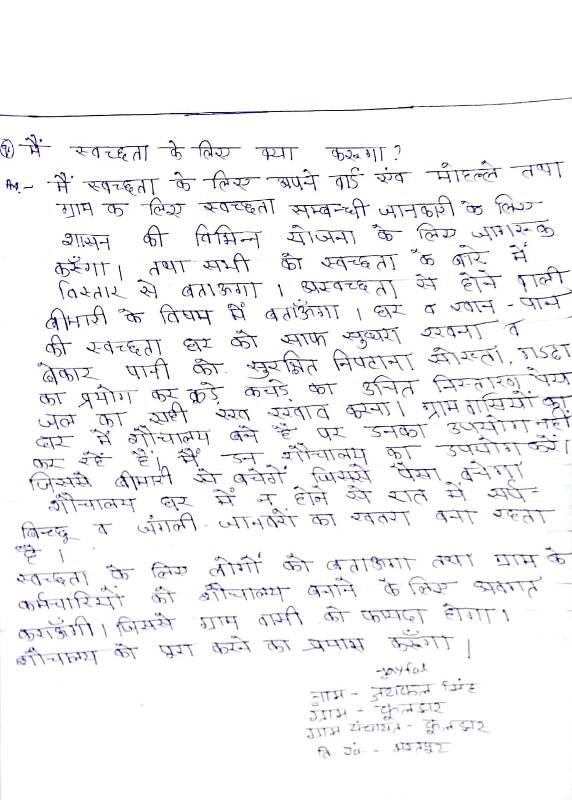 मैं स्वच्छता के लिए क्या करूगा?
Ans.- मैं स्वच्छता के लिए अपने वार्ड एंव मोहल्ले तथा
ग्राम क लिए स्वच्छता सम्बन्धी जानकारी के लिए
शासन की विभिन्न योजना के लिए जागरूक
करूँगा। तथा सभी को स्वच्छता के बारे में
विस्तार से बताऊगा। अस्वच्छता से होने वाली
बीमारी के विषय में बताऊँगा। घर व खान-पान
की स्वच्छता घर को साफ सुथरा रखना व
बेकार पानी को सुरक्षित निपटाना सोख्ता, गडढा
का प्रयोग कर कूडे कचडे का उचित निस्तारण पेय
जल का सही रख रखाव करना। ग्राम वासियों का
घर में शौचालय बने है पर उनका उपयोग नहीं
कर रहे है। मैं उन शौचालय का उपयोग करें।
जिससे बीमारी से बचेगें जिससे पैसा बचेगा
शौचालय घर में न होने से रात में सर्प-
बिच्छू व जंगली जानवरों का खतरा बना रहता
है।
स्वच्छता के लिए लोगों को बताऊगा तथा ग्राम के
कर्मचारियों को शौचालय बनाने के लिए अवगत
कराऊँगी। जिससे ग्राम वासी को फायदा होगा।
शौचालय को पूरा करने का प्रयास करूँगा।
नाम - जयफल सिंह
ग्राम - फूलझर
ग्राम पंचायत - फूलझर
वि ख -